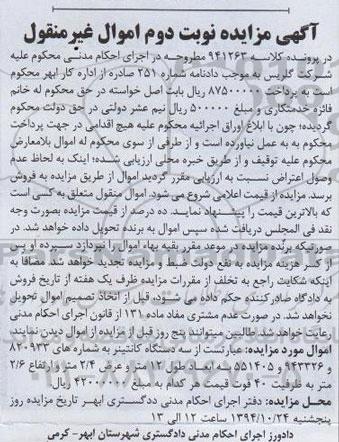 آگهی مزایده نوبت دوم اموال غیرمنقول
در پرونده کلاسه ۹۴۱۲۶۳ مطروحه در اجرای احکام مدنی محکوم علیه
شرکت گلریس به موجب دادنامه شماره ۲۵۱ صادره از اداره کار ابهر محکوم
است به پرداخت ۸۷۵۰۰۰۰۰ ریال بابت اصل خواسته در حق محکوم له خانم
فائزه خدمتکاری و مبلغ ۵۰۰۰۰۰ ریال نیم عشر دولتی در حق دولت محکوم
گردیده؛ چون با ابلاغ اوراق اجرائیه محکوم علیه هیچ اقدامی در جهت پرداخت
محکوم به به عمل نیاورده است و از طرفی از سوی محکوم له اموال بلامعارض
محکوم علیه توقیف و از طریق خبره محلی ارزیابی شده؛ اینک به لحاظ عدم
وصول اعتراض نسبت به ارزیابی مقرر گردید اموال از طریق مزایده به فروش
برسد. مزایده از قیمت اعلامی شروع می شود. اموال منقول متعلق به کسی است
که بالاترین قیمت را پیشنهاد نماید. ده درصد از قیمت مزایده بصورت وجه
نقد فی المجلس دریافت شده سپس اموال به برنده تحویل داده خواهد شد. در
صورتیکه برنده مزایده در موعد مقرر بقیه بهاء اموال را نپردازد سپرده او پس
از کسر هزینه مزایده به نفع دولت ضبط و مزایده تجدید خواهد شد مضافا به
اینکه شکایت راجع به تخلف از مقررات مزایده ظرف یک هفته از تاریخ فروش
به دادگاه صادرکننده حکم داده می شود، قبل از اتخاذ تصمیم اموال تحویل
نخواهد شد. در صورت عدم مشتری مفاد ماده ۱۳۱ از قانون اجرای احکام مدنی
رعایت خواهد شد. طالبین میتوانند پنج روز قبل از مزایده از اموال دیدن نمایند.
اموال مورد مزایده: عبارتست از سه دستگاه کانتینر به شماره های ۸۲۰۹۳۳
و ۹۴۳۳۲۶ و ۵۵۱۴۰۵ به ابعاد طول ۱۲ متر و عرض ۲/۴ متر و ارتفاع ۲/۶
متر به ظرفیت ۴۰ فوت قیمت هر کدام به مبلغ ۴۲۰۰۰۰۰۰ ریال
محل مزایده: دفتر اجرای احکام مدنی دادگستری ابهر تاریخ مزایده روز
پنجشنبه ۱۳۹۴/۱۰/۲۴ ساعت ۱۲ الی ۱۳
دادورز اجرای احکام مدنی دادگستری شهرستان ابهر- کرمی